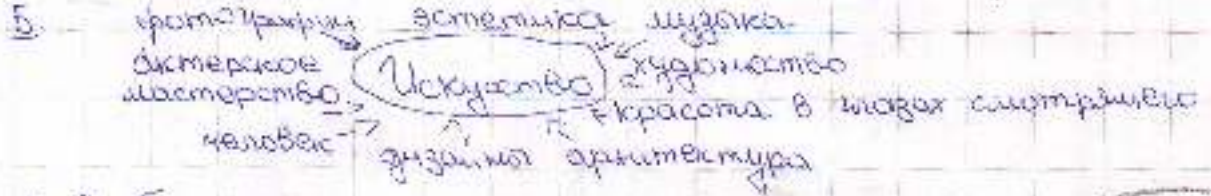 5. фотографии эстетика музыка
актерское Искусство художество
мастерство красота в глазах смотрящего
человек дизайны архитектура